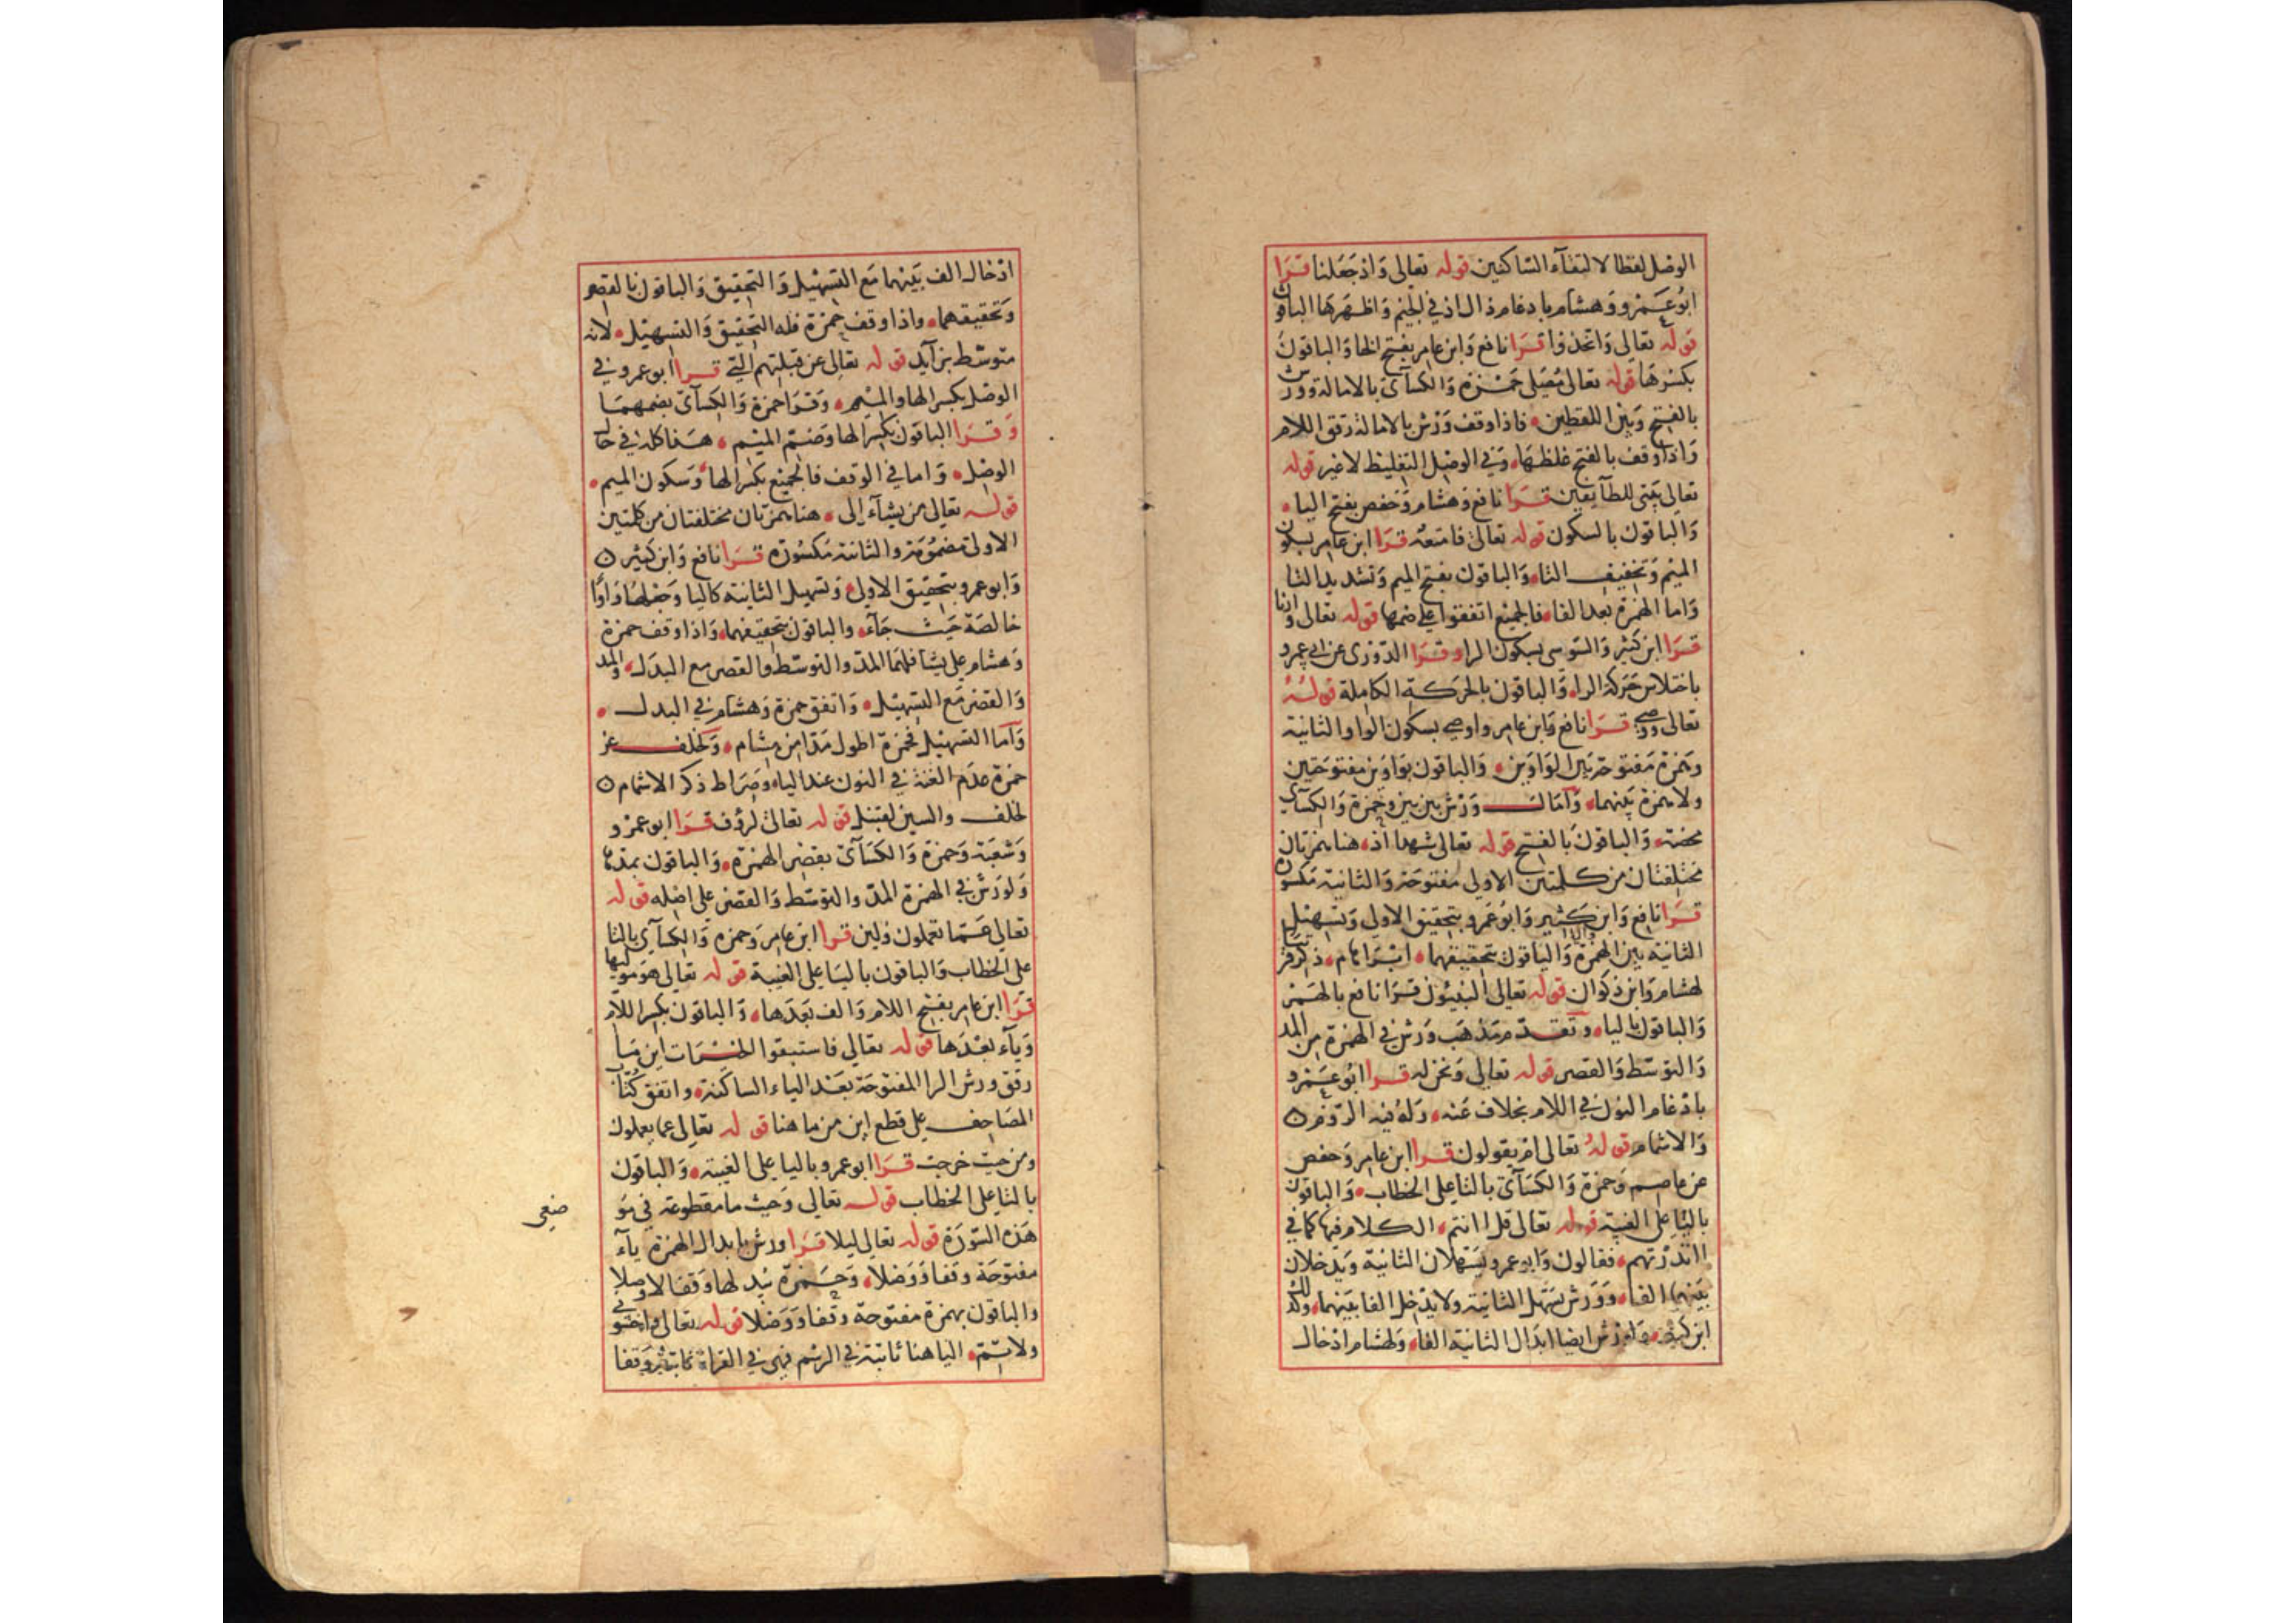 الوصل لفظا لالتقآء الساكنين قوله تعالى وَاذ جَعَلنا قرَا
ابُو عَمرو وَهشام بادغام ذال اذ في الجيم وَاظهَرهَا الباقون
قوله تعالى وَاتخذوا قرَا نافع وَابن عامر بفتح الخا وَالباقون
بكسرهَا قوله تعالى مُصَلى حَمزة وَالكسآئ بالامالة وورش
بالفتح وَبين اللفظين فاذا وقف وَرش بالامالة رَقق اللام
وَاذا وقف بالفتح غلظهَا وَفي الوصل التغليظ لا غير قوله
تعالى بَيتى للطآيفين قرَا نافع وَهشام وَحَفص بفتح اليا
وَالباقون بالسكون قوله تعالى فامتعُه قرَا ابن عامر بسكون
الميم وَتخفيف التا وَالباقون بفتح الميم وَتشديد التا
وَاما الهمزة بَعد الفا فالجميع اتفقوا على ضمها قوله تعالى وَارنا
قرَا ابن كثير وَالسّوسى بسكون الرا وقرَا الدّورى عن ابى عمرو
باختلاس حَركة الرا وَالباقون بالحَركة الكاملة قوله
تعالى ووصى قرَا نافع وَابن عامر واوصى بسكون الواو الثانية
وَهمزة مَفتوحة بَين الوَاوَين وَالباقون بوَاوَين مفتوحَتين
ولا همزة بَينهما وَامَال وَرش بين بين وحمزة وَالكسآئ
محضة وَالباقون بالفتح قوله تعالى شهدا اذ هنا همزتان
مختلفتان من كلمتين الاولى مفتوحَة وَالثانية مَكسورة
قرَا نافع وَابن كثير وَابُو عَمرو بتحقيق الاولى وَتسهيل
الثانية بين الهمزة وَاليا وَالباقون بتحقيقهما ابرَاهام ذكر قريبا
لهشام وَابن ذكوان قوله تعالى النبيئون قرَا نافع بالهَمز
وَالباقون باليا وتقدّم مذهَب وَرش في الهمزة من المد
وَالتوَسّط وَالقصر قوله تعالى وَنحن له قرَا ابُو عَمرو
بادغام النون في اللام بخلاف عَنه وَلهُ فيه الرّوم
وَالاشمام قولهُ تعالى امْ يقولون قرا ابن عامر وَحفص
عن عاصم وَحمزة وَالكسَآئ بالتا على الخطاب وَالباقون
باليا على الغيبة قوله تعالى قل اانتم الكلام فيها كما في
اانذرتهم فقالون وَابو عمرو يسَهلان الثانية وَيدخلان
بَينهما الفا وَوَرش يسَهل الثانية ولا يدخل الفا بَينهما وكذلك
ابن كثير ولورش ايضا ابدَال الثانية الفا وَلهشام ادخال
ادخال الف بَينهما مَع التسهيل وَالتحقيق وَالباقون بالقصر
وَتحقيقهما واذا وقف حمزة فله التحقيق وَالتسهيل لانه
متوسّط بزآيد قوله تعالى عن قبلتهم التي قرا ابو عمرو في
الوصل بكسر الها والميم وَقرَا حمزة وَالكسَآئ بضمهمَا
وَقرَا الباقون بكسر الها وَضم الميم هَذا كله في حال
الوصل وَاما في الوقف فالجميع بكسر الها وَسكون الميم
قوله تعالى من يشآء الى هنا همزتان مختلفتان من كلمتين
الاولى مضمُومَة والثانية مَكسُورة قرَا نافع وَابن كثير
وَابو عمرو بتحقيق الاولى وَتسهيل الثانية كاليا وَجَعلهَا وَاوًا
خالصَة حَيث جَآء والباقون بتحقيقهما وَاذا وقف حمزة
وَهشام على يشا فلهمَا المدّ والتوسّط وَالقصر مع البدَل وَالمد
وَالقصر مَع التسهيل وَاتفق حمزة وَهشام في البدل
وَامّا التسهيل فحمزة اطول مَدّا من هشام وَلخلف عن
حمزة عدَم الغنة في النون عند اليا وصرَاط ذكر الاشمام
لخلف والسين لقنبل قوله تعالى لرؤف قرَا ابو عمرو
وَشعبَة وَحمزة وَالكسَآئ بقصر الهمزة وَالباقون بمدها
وَلورش في الهمزة المدّ والتوسّط وَالقصر على اصله قوله
تعالى عَمّا تعملون وَلين قرا ابن عامر وَحمزه وَالكسآئ بالتا
على الخطاب وَالباقون باليَا على الغيبة قوله تعالى هوَ موليها
قرَا ابن عامر بفتح اللام وَالف بَعدَها وَالباقون بكسر اللام
وَيآء بَعْدَها قوله تعالى فاستبقوا الخيرات اين مَا
رقق ورش الرا المفتوحَة بعَد الياء الساكنة واتفق كُتّاب
المصَاحِف على قطع اين من ما هنا قوله تعالى عما يعملون
ومن حيث خرجت قرَا ابو عمرو باليا على الغيبَة وَالباقون
بالتا على الخطاب قوله تعالى وَحيث ما مقطوعة في
هَذه السّورَة قوله تعالى ليلا قرَا ورش بابدال الهمزة يآء
مفتوحَة وقفا وَوَصْلا وَحَمزة يُبدلها وَقفا لا وصلا
والباقون بهمزة مفتوحة وقفا وَوَصْلا قوله تعالى وَاخشوني
ولاتمّ اليا هنا ثابتة في الرسم فهى في القراة ثابتة وَقفا